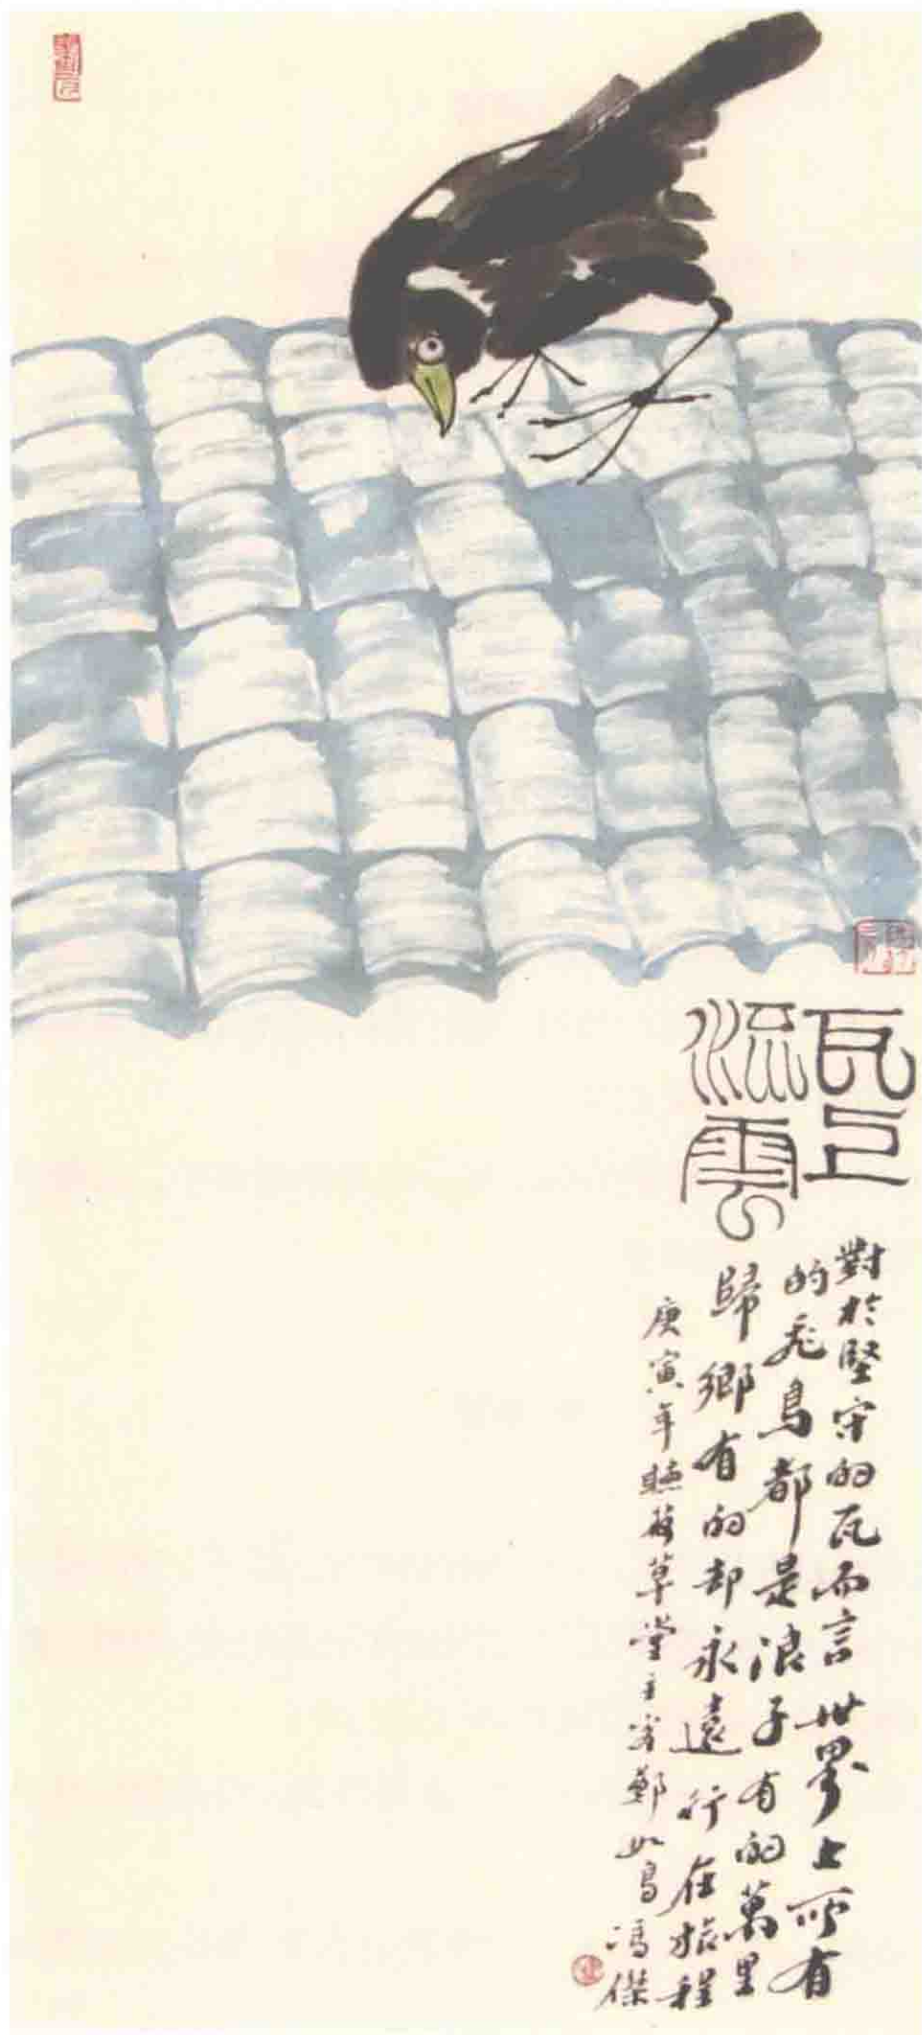 瓦上
流雲
對於堅守的瓦而言世界上所有
的飛鳥都是浪子有的萬里
歸鄉有的却永遠行在旅程
庚寅年聽荷草堂主客鄭如鳥馮傑